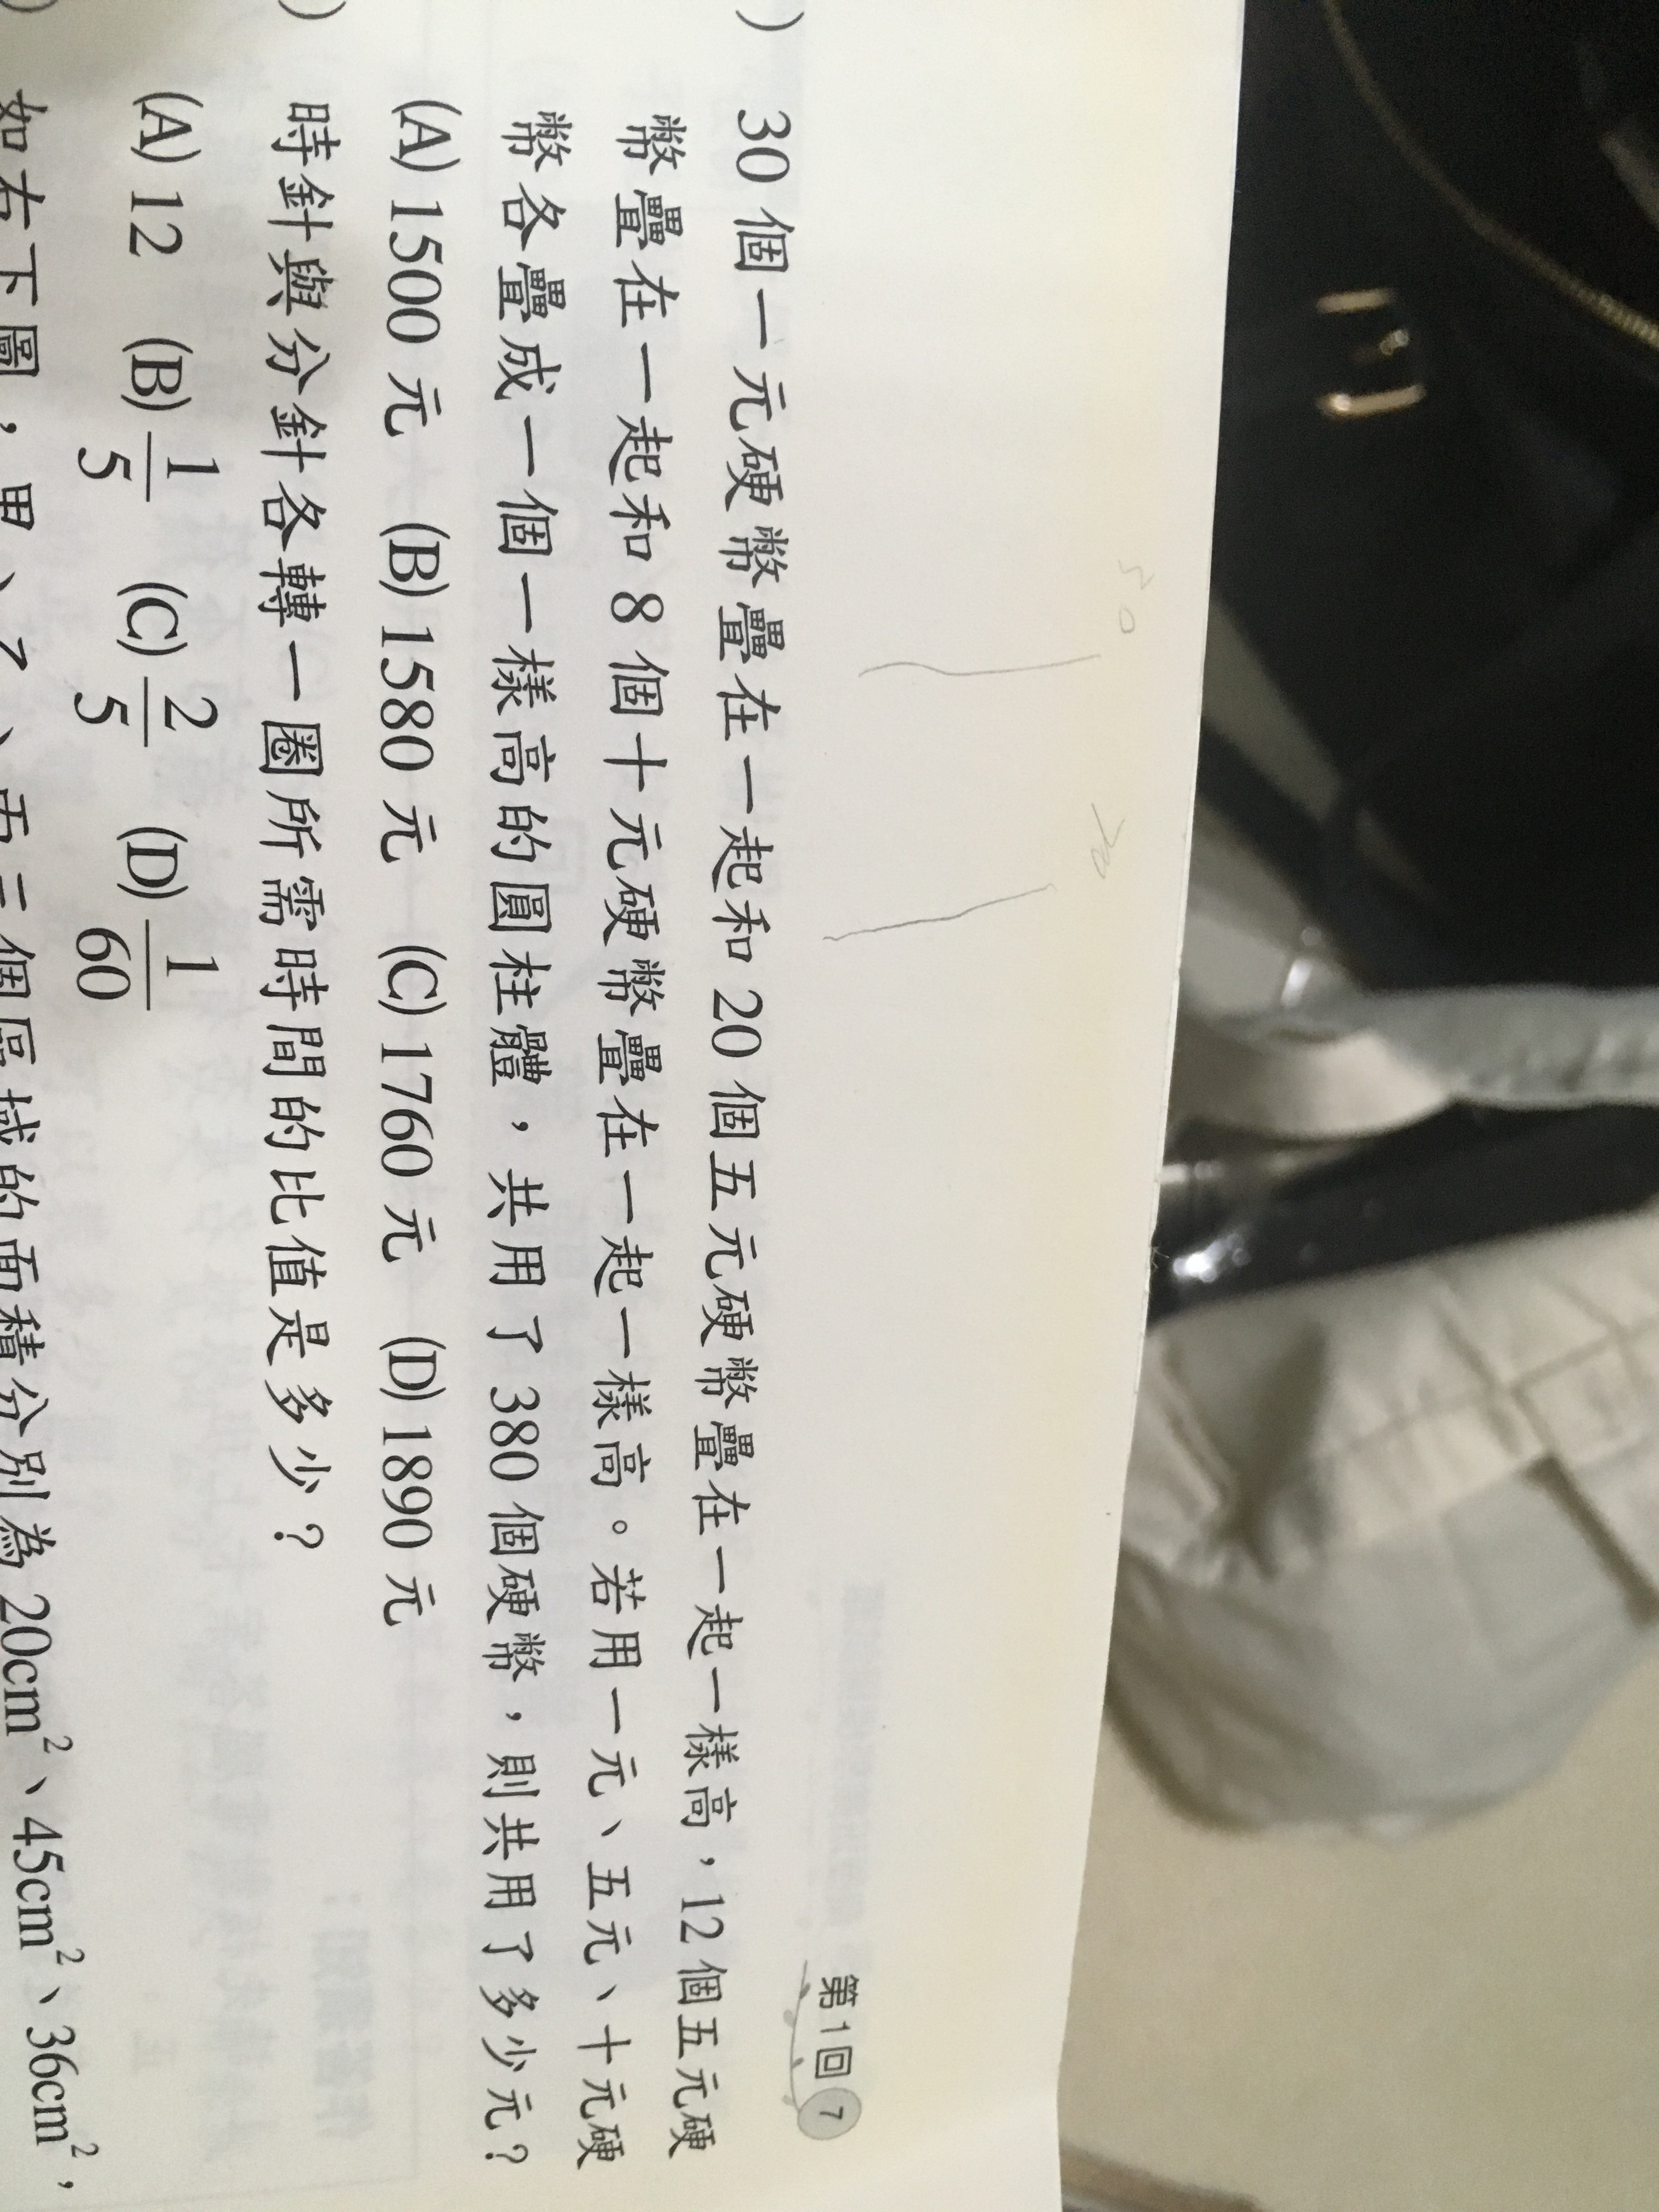 第1回 7
) 30 個一元硬幣疊在一起和 20 個五元硬幣疊在一起一樣高，12 個五元硬
幣疊在一起和 8 個十元硬幣疊在一起一樣高。若用一元、五元、十元硬
幣各疊成一個一樣高的圓柱體，共用了 380 個硬幣，則共用了多少元？
(A) 1500 元 (B) 1580 元 (C) 1760 元 (D) 1890 元
) 時針與分針各轉一圈所需時間的比值是多少？
(A) 12 (B) 1/5 (C) 2/5 (D) 1/60
) 如右下圖，甲、乙、丙三個區域的面積分別為 20cm²、45cm²、36cm²，